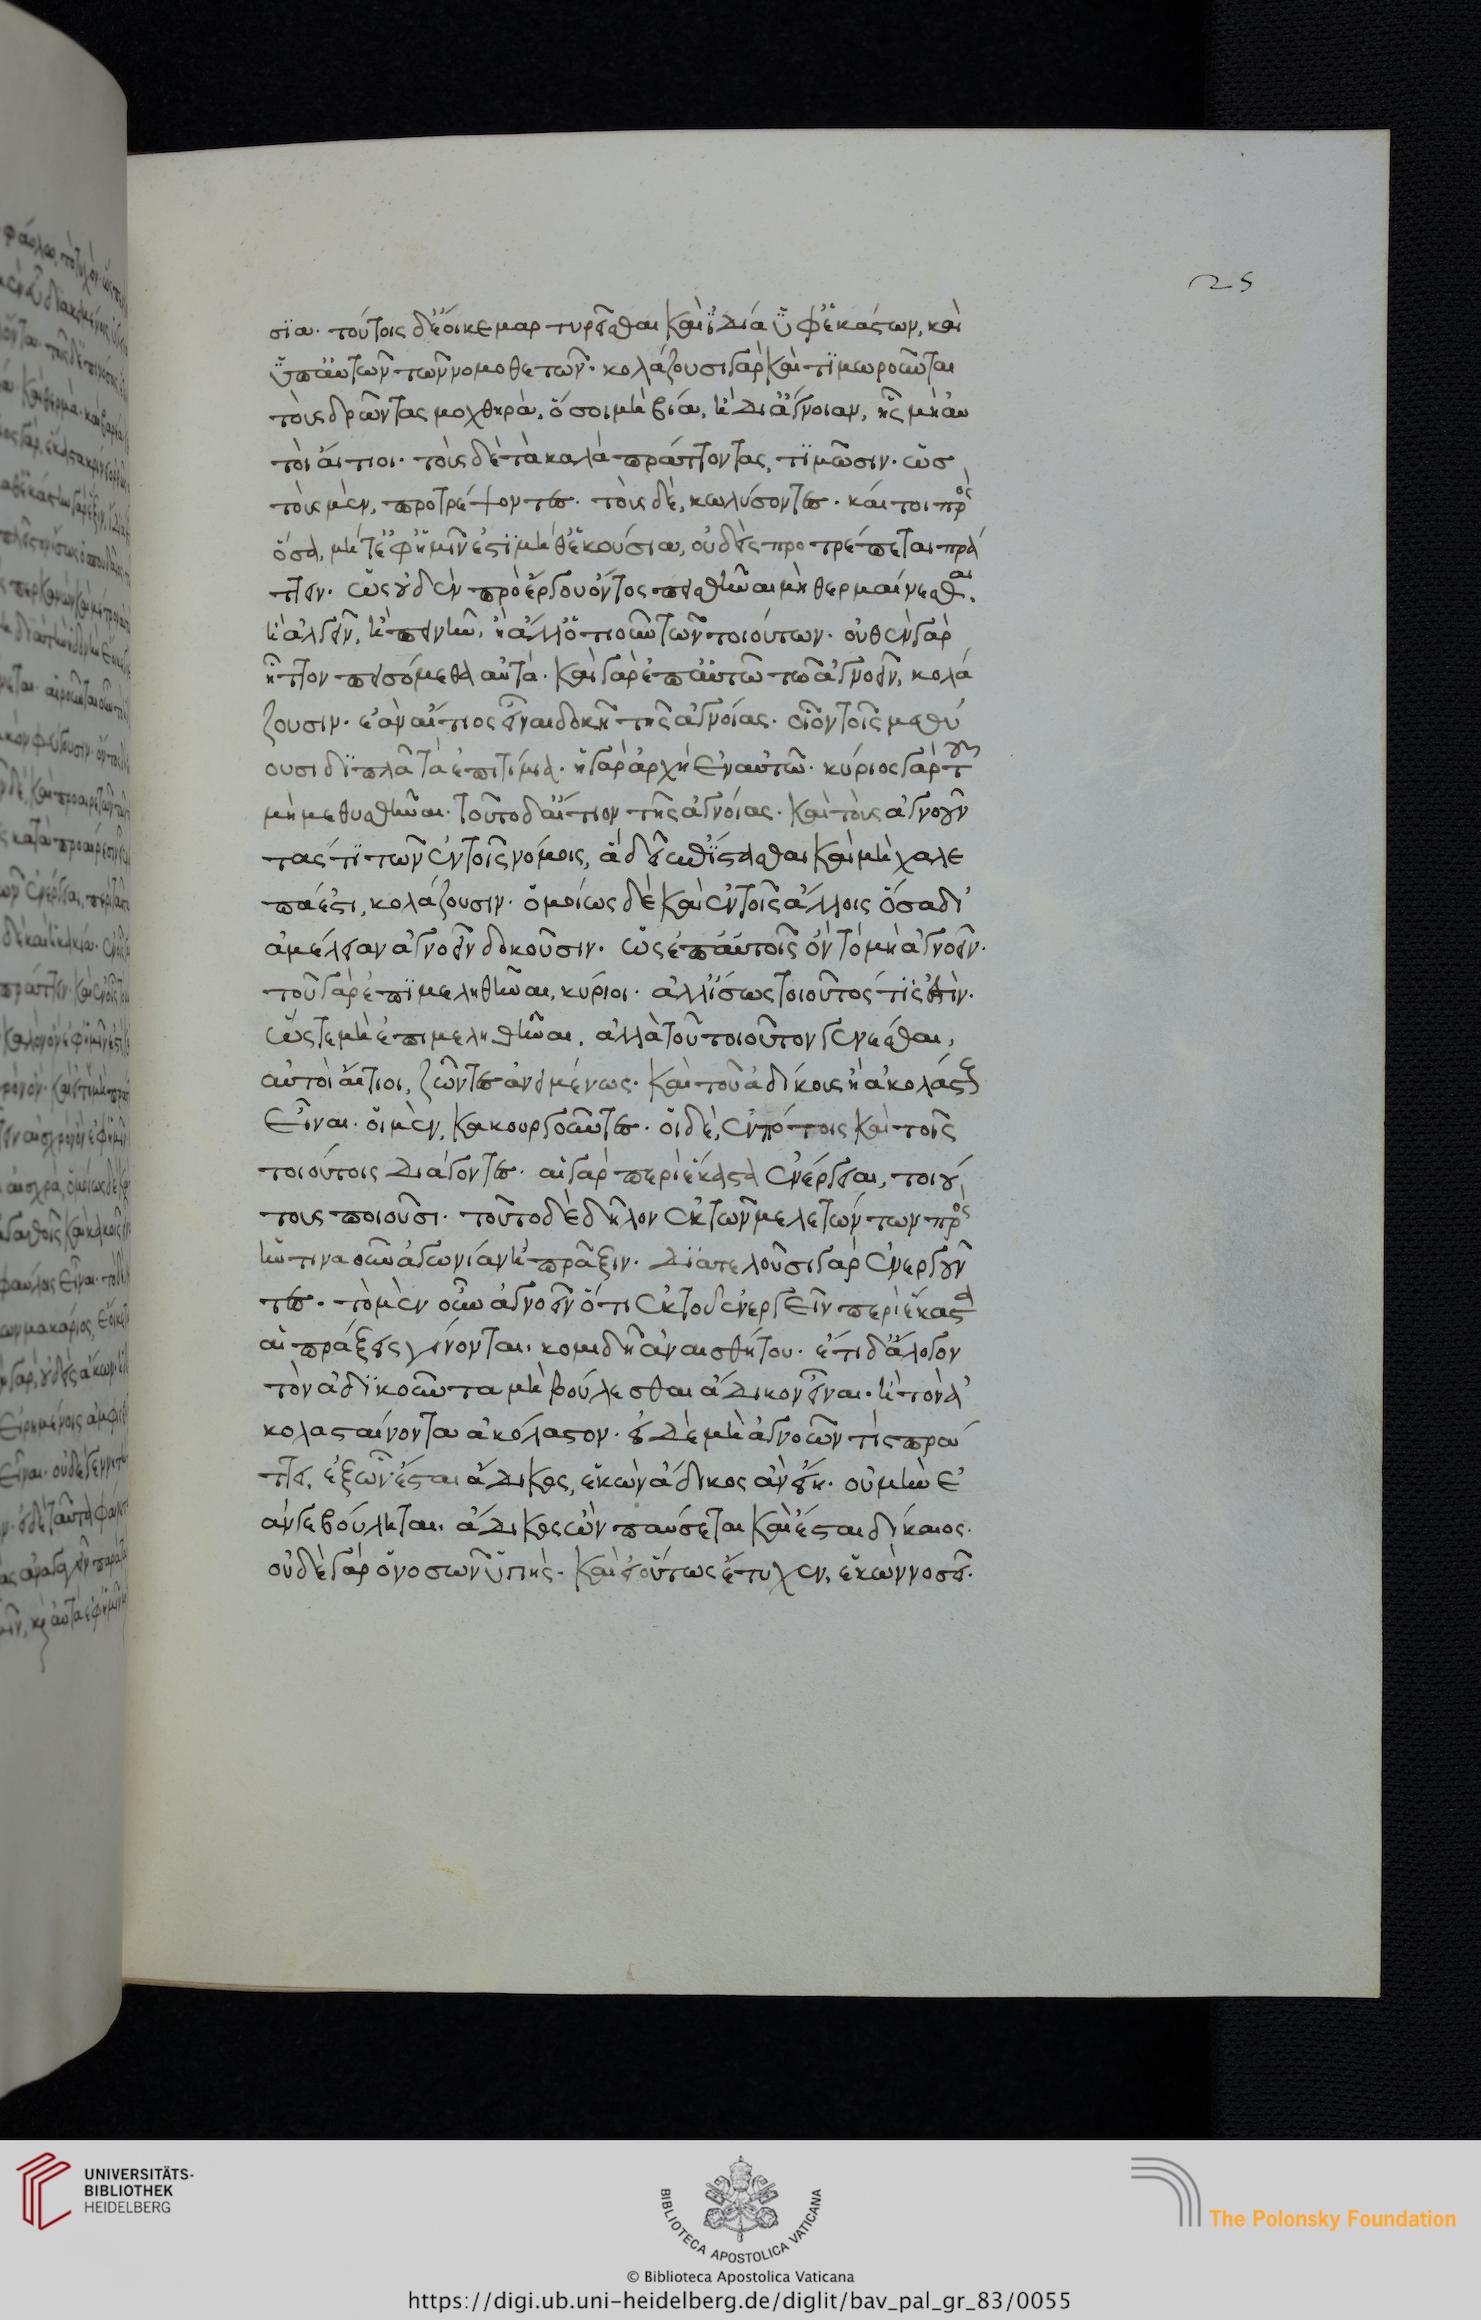 25
σϊα. τούτοις δ' ἔοικε μαρτυρεῖσθαι καὶ ἰδία ὑφ' ἑκάστων, καὶ
ὑπ' αὐτῶν τῶν νομοθετῶν. κολάζουσι γὰρ καὶ τϊμωροῦνται
τοὺς δρῶντας μοχθηρὰ, ὅσοι μὴ βία, ἢ δι' ἄγνοιαν, ἧς μὴ αυ
τοὶ αἴτιοι. τοὺς δὲ τὰ καλὰ πράττοντας, τϊμῶσιν. ὡς
τοὺς μὲν, προτρέψοντες. τοὺς δὲ, κωλύσοντες. καίτοι πρὸς
ὅσα, μήτ' ἐφ' ἡμῖν ἐστϊ μήθ' ἑκούσια, οὐδεὶς προτρέπεται πρά
ττειν. ὡς οὐδὲν πρὸ ἔργου ὄντος πεισθῆναι μὴ θερμαίνεσθαι,
ἢ ἀλγεῖν, ἢ πεινῆν, ἢ ἄλλ' ὁτιοῦν τῶν τοιούτων. οὐθὲν γὰρ
ἧττον πεισόμεθα αὐτά. καὶ γὰρ ἐπ' αὐτῶ τῶ ἀγνοεῖν, κολά
ζουσιν. ἐὰν αἴτιος εἶναι δοκῆ τῆς ἀγνοίας. οἷον τοῖς μεθύ
ουσι δϊπλᾶ τὰ ἐπιτίμια. ἡ γὰρ ἀρχὴ ἐν αὐτῶ. κύριος γὰρ τοῦ
μὴ μεθυσθῆναι. τοῦτο δ' αἴτιον τῆς ἀγνοίας. καὶ τοὺς ἀγνοοῦν
τάς τϊ τῶν ἐν τοῖς νόμοις, ἃ δεῖ ἐπίστασθαι καὶ μὴ χαλε
πά ἐστι, κολάζουσιν. ὁμοίως δὲ καὶ ἐν τοῖς ἄλλοις ὅσα δι'
ἀμέλειαν ἀγνοεῖν δοκοῦσιν. ὡς ἐπ' αὐτοῖς ὂν τὸ μὴ ἀγνοεῖν.
τοῦ γὰρ ἐπϊμεληθῆναι, κύριοι. ἀλλ' ἴσως τοιοῦτός τίς ἐστὶν.
ὥστε μὴ ἐπιμεληθῆναι, ἀλλὰ τοῦ τοιοῦτον γενέσθαι,
αὐτοὶ αἴτιοι, ζῶντες ἀνειμένως. καὶ τοῦ ἀδίκοις ἢ ἀκολάστοις
εἶναι. οἱ μὲν, κακουργοῦντες. οἱ δὲ, ἐν πότοις καὶ τοῖς
τοιούτοις διάγοντες. αἱ γὰρ περὶ ἕκαστα ἐνέργειαι, τοιού
τους ποιοῦσι. τοῦτο δὲ δῆλον ἐκ τῶν μελετώντων πρὸς
ἥντινα οὖν ἀγωνίαν ἢ πρᾶξιν. δϊατελοῦσι γὰρ ἐνεργοῦν
τες. τὸ μὲν οὖν ἀγνοεῖν ὅτι ἐκ τοῦ ἐνεργεῖν περὶ ἕκαστα
αἱ πράξεις γίνονται, κομιδῆ ἀναισθήτου. ἔτι δ' ἄλογον
τὸν ἀδϊκοῦντα μὴ βούλεσθαι ἄδικον εἶναι. ἢ τὸν ἀ
κολασταίνοντα ἀκόλαστον. εἰ δὲ μὴ ἀγνοῶν τὶς πρά
ττει, ἐξ ὧν ἔσται ἄδικος, ἑκὼν ἄδικος ἂν εἴη. οὐ μὴν ἐ
άν γε βούληται, ἄδικος ὢν παύσεται καὶ ἔσται δίκαιος.
οὐδὲ γὰρ ὁ νοσῶν ὑγιής. καὶ εἰ οὕτως ἔτυχεν, ἑκὼν νοσεῖ.
UNIVERSITÄTS-
BIBLIOTHEK
HEIDELBERG
BIBLIOTECA APOSTOLICA VATICANA
The Polonsky Foundation
© Biblioteca Apostolica Vaticana
https://digi.ub.uni-heidelberg.de/diglit/bav_pal_gr_83/0055